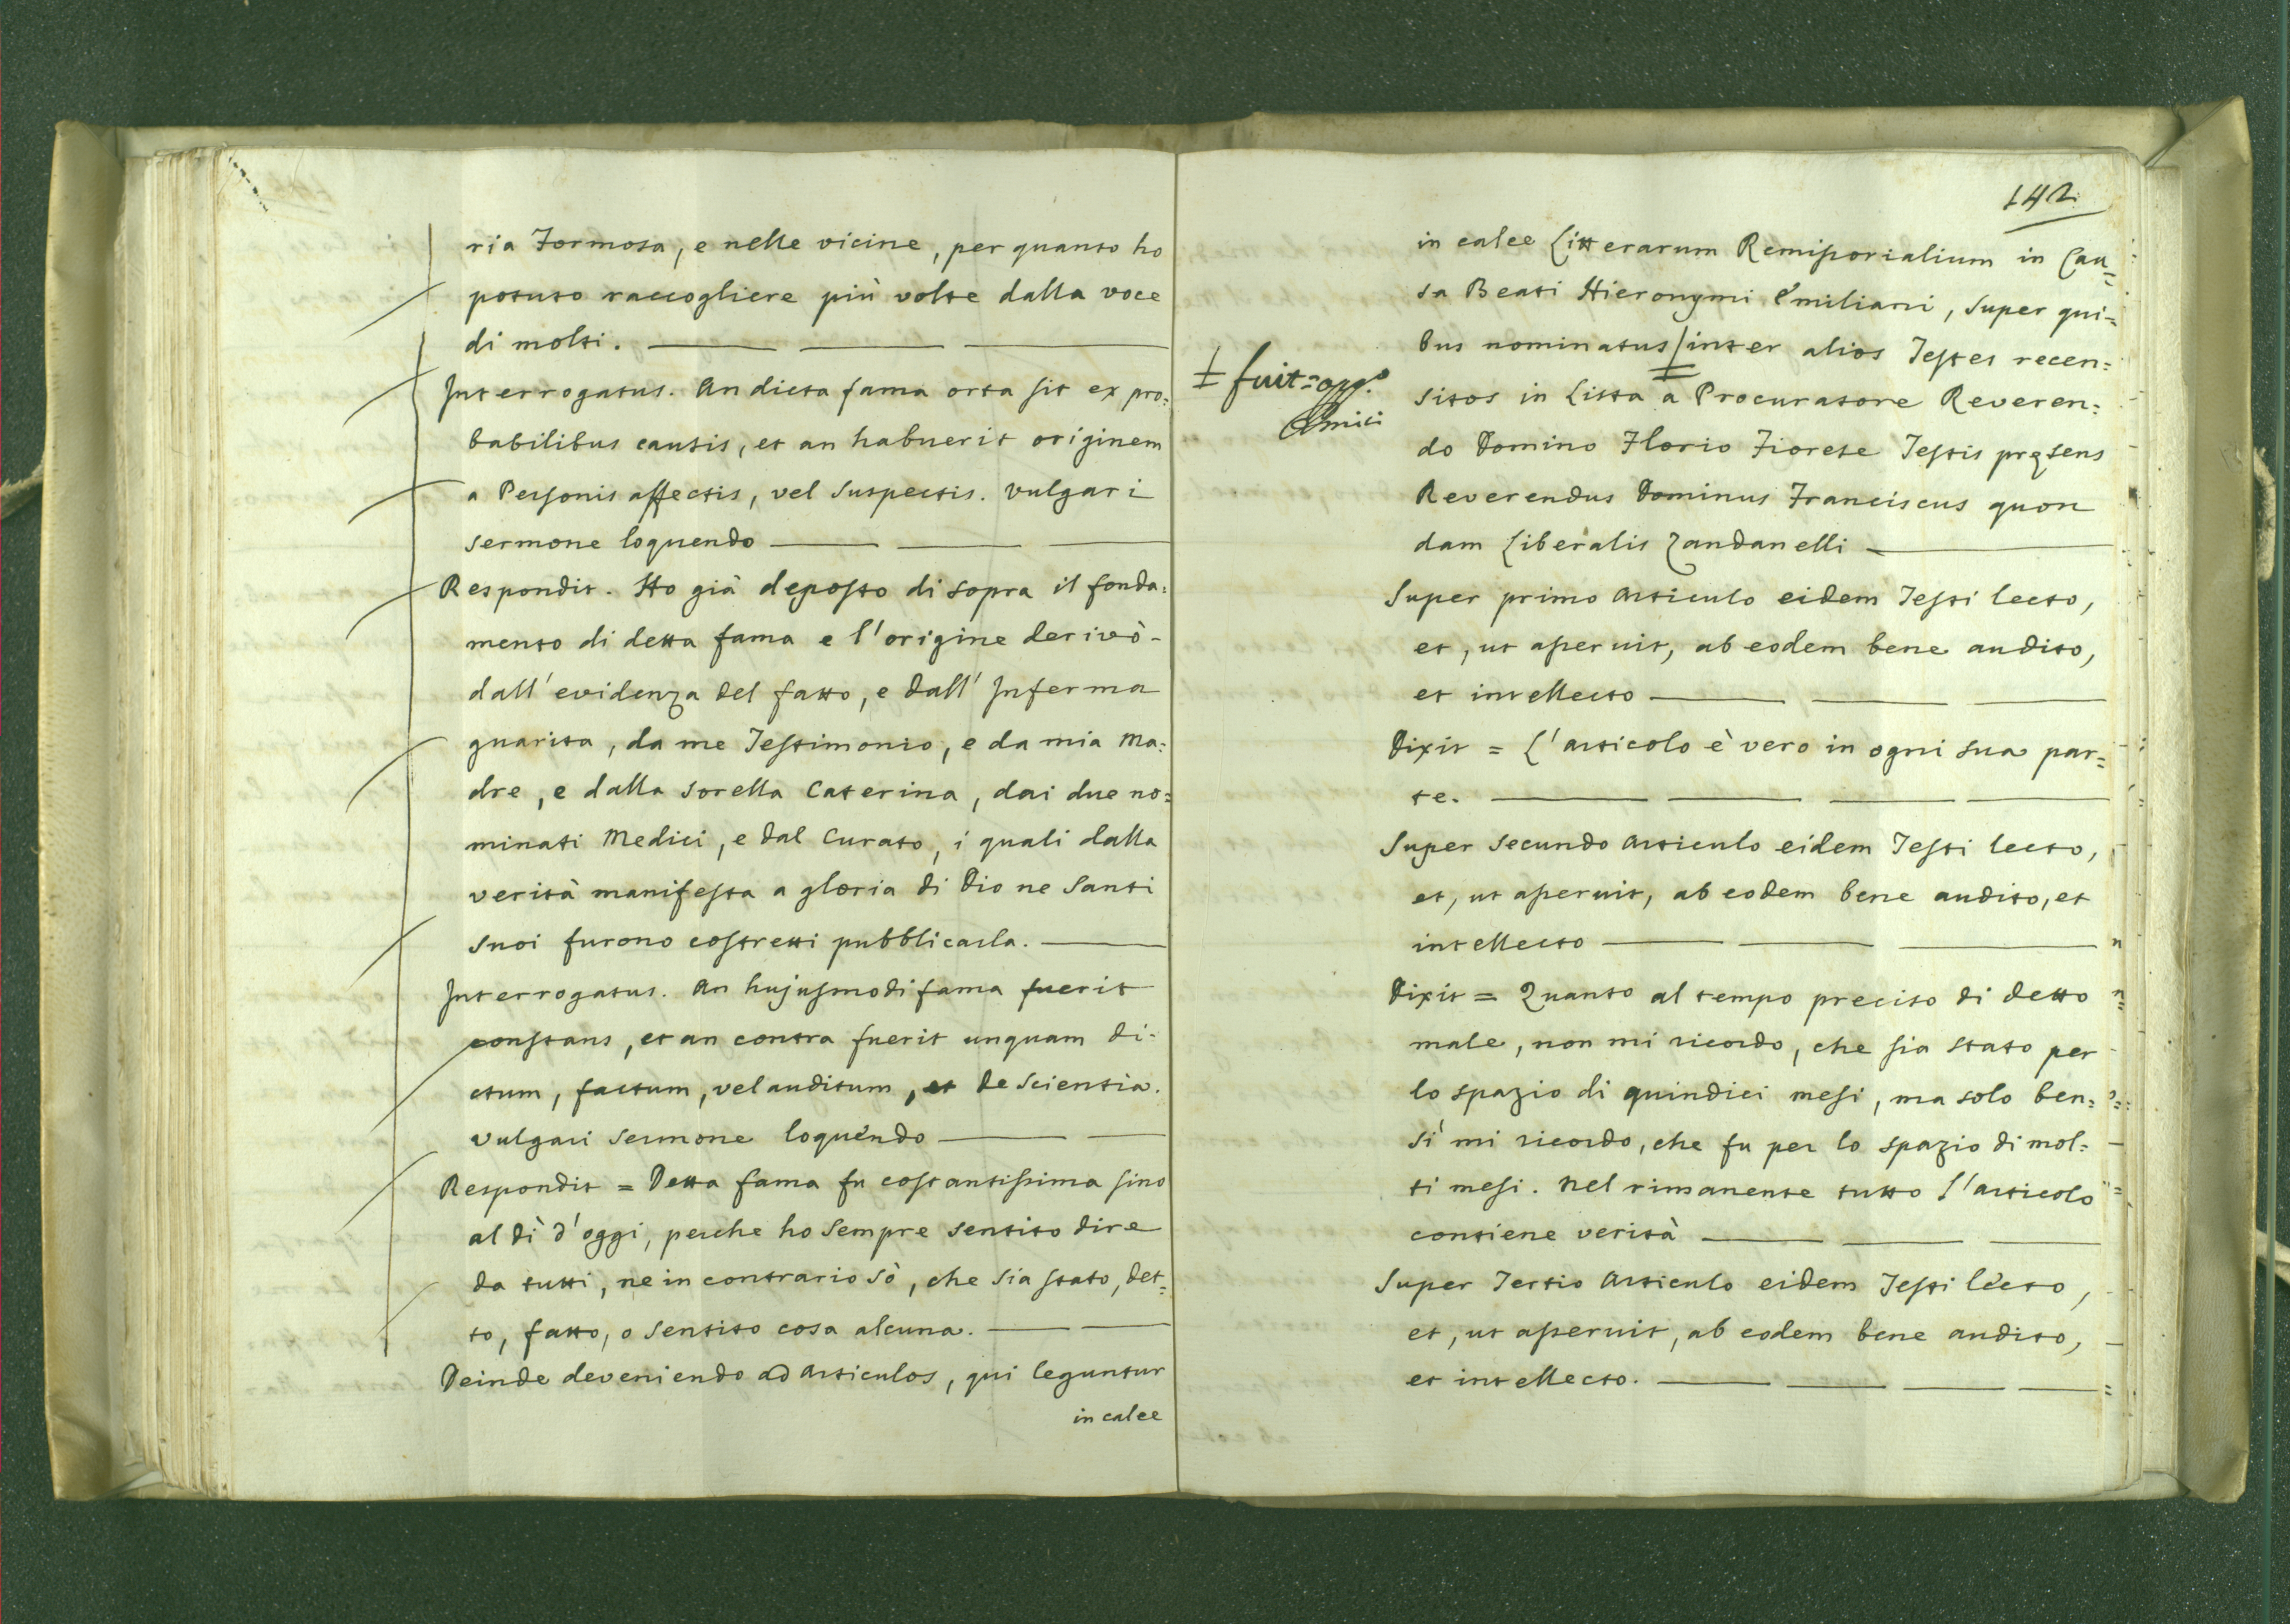 ria Formosa, e nelle vicine, per quanto ho
potuto raccogliere più volte dalla voce
di molti.
Interrogatus. An dicta fama orta sit ex pro:
babilibus causis, et an habuerit originem
a Personis affectis, vel suspectis. Vulgari
sermone loquendo
Respondit. Ho già deposto di sopra il fonda:
mento di detta fama e l'origine derivò
dall'evidenza del fatto, e dall'Inferma
guarita, da me Testimonio, e da mia Ma:
dre, e dalla sorella Caterina, dai due no:
minati Medici, e dal Curato, i quali dalla
verità manifesta a gloria di Dio ne Santi
suoi furono costretti pubblicarla.
Interrogatus. An hujusmodi fama fuerit
constans, et an contra fuerit unquam di:
ctum, factum, vel auditum, et de scientia.
vulgari sermone loquendo
Respondit = Detta fama fu costantissima sino
al dì d'oggi, perche ho sempre sentito dire
da tutti, ne in contrario sò, che sia stato, det:
to, fatto, o sentito cosa alcuna.
Deinde deveniendo ad Articulos, qui leguntur
in calce
142
in calce Litterarum Remissorialium in Cau:
sa Beati Hieronymi Emiliani, super qui:
bus nominatus inter alios Testes recen:
‡ fuit =
Amici
sitos in Lista a Procuratore Reveren:
do Domino Florio Fiorese Testis pręsens
Reverendus Dominus Franciscus quon
dam Liberalis Zandanelli
Super primo Articulo eidem Testi lecto,
et, ut asseruit, ab eodem bene audito,
et intellecto
Dixit = L'articolo è vero in ogni sua par:
te.
Super secundo Articulo eidem Testi lecto,
et, ut asseruit, ab eodem bene audito, et
intellecto
Dixit = Quanto al tempo preciso di detto
male, non mi ricordo, che sia stato per
lo spazio di quindici mesi, ma solo ben:
sì mi ricordo, che fu per lo spazio di mol:
ti mesi. Nel rimanente tutto l'articolo
contiene verità
Super Tertio Articulo eidem Testi lecto,
et, ut asseruit, ab eodem bene audito,
et intellecto.